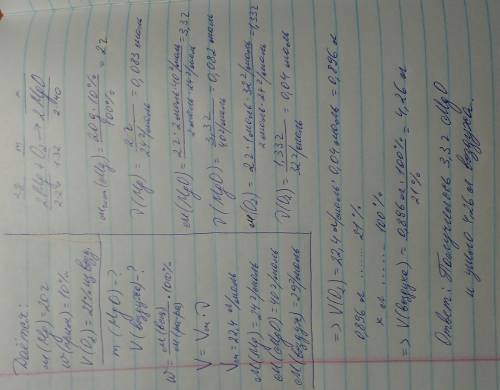 Дано:
m(Mg)=20г
w(прим)=10%
V(O₂)=21% возд.
m(MgO)=?
V(воздуха)=?
V=Vm·ν
Vm=22,4 л/моль
M(Mg)=24 г/моль
M(MgO)=40 г/моль
M(воздух)=29 г/моль
2Mg+O₂→2MgO
2·24 1·32 2·40
= 20г·10% / 100% = 2г
ν(Mg)= 2г / 24г/моль = 0,083 моль
m(MgO)= 2г·2моль·40г/моль / 2моль·24г/моль = 3,3г
= 0,082 моль
m(O₂)= 2г·1моль·32г/моль / 2моль·24г/моль = 1,33г
ν(O₂)= 1,33г / 32г/моль = 0,04 моль
=> V(O₂)=22,4 л/моль·0,04 моль=0,896 л
0,896 л ...... 21%
x л ...... 100%
=> V(воздуха)= 0,896 л·100% / 21% = 4,26 л
Ответ: 3,3г MgO
и ушло 4,26 л воздуха.